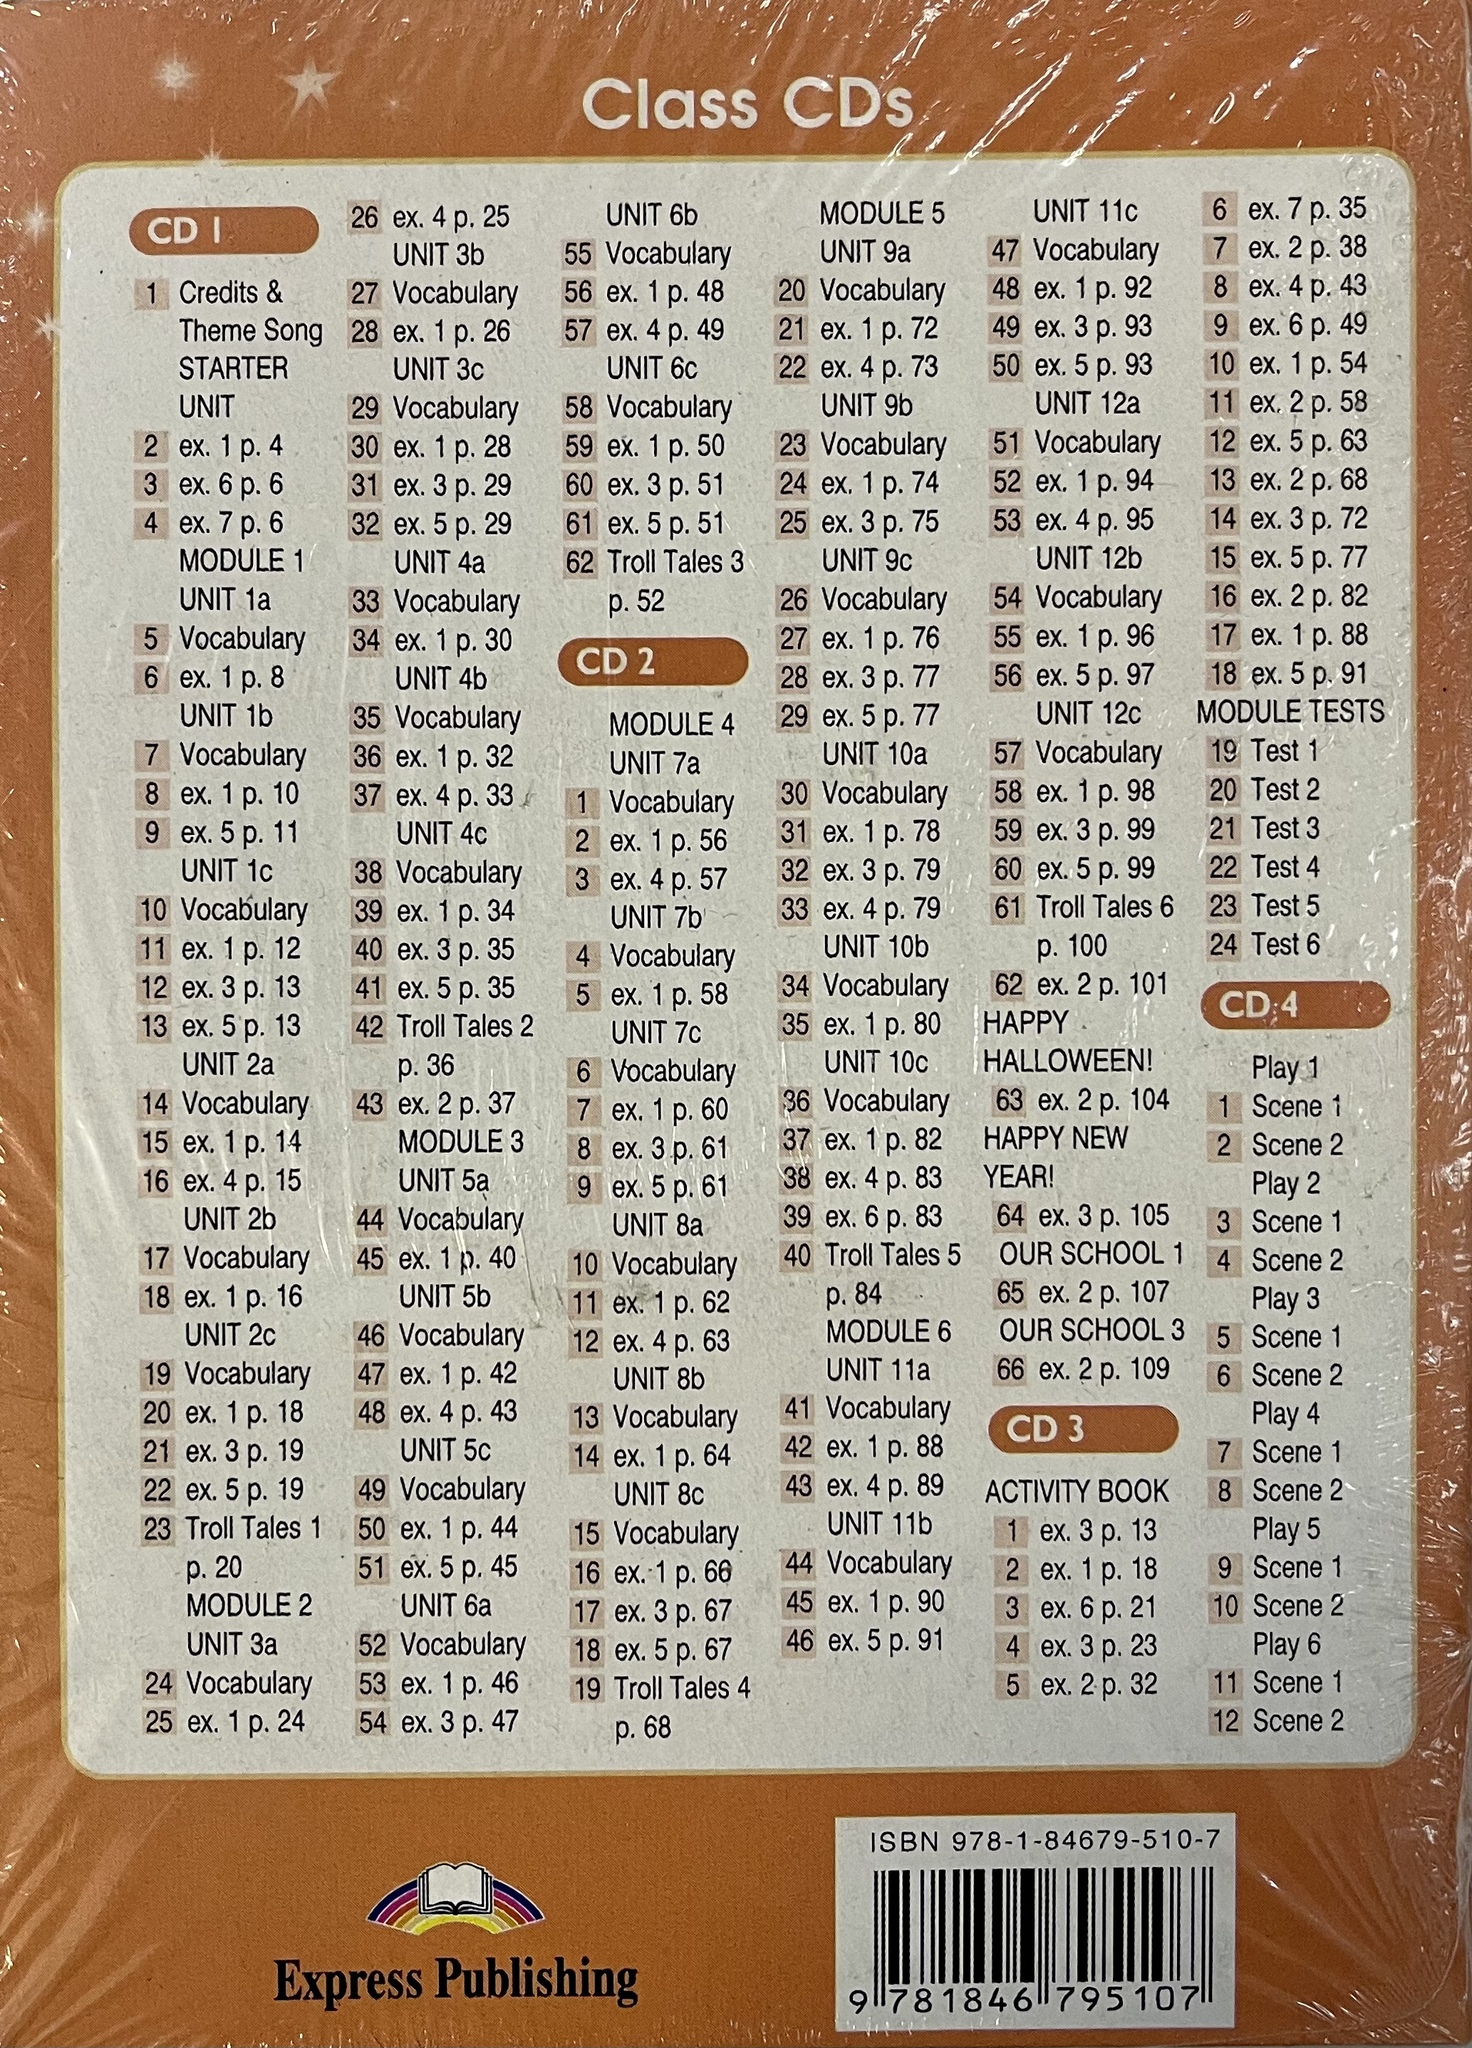 Class CDs
CD 1
1 Credits &
Theme Song
STARTER
UNIT
2 ex. 1 p. 4
3 ex. 6 p. 6
4 ex. 7 p. 6
MODULE 1
UNIT 1a
5 Vocabulary
6 ex. 1 p. 8
UNIT 1b
7 Vocabulary
8 ex. 1 p. 10
9 ex. 5 p. 11
UNIT 1c
10 Vocabulary
11 ex. 1 p. 12
12 ex. 3 p. 13
13 ex. 5 p. 13
UNIT 2a
14 Vocabulary
15 ex. 1 p. 14
16 ex. 4 p. 15
UNIT 2b
17 Vocabulary
18 ex. 1 p. 16
UNIT 2c
19 Vocabulary
20 ex. 1 p. 18
21 ex. 3 p. 19
22 ex. 5 p. 19
23 Troll Tales 1
p. 20
MODULE 2
UNIT 3a
24 Vocabulary
25 ex. 1 p. 24
26 ex. 4 p. 25
UNIT 3b
27 Vocabulary
28 ex. 1 p. 26
UNIT 3c
29 Vocabulary
30 ex. 1 p. 28
31 ex. 3 p. 29
32 ex. 5 p. 29
UNIT 4a
33 Vocabulary
34 ex. 1 p. 30
UNIT 4b
35 Vocabulary
36 ex. 1 p. 32
37 ex. 4 p. 33
UNIT 4c
38 Vocabulary
39 ex. 1 p. 34
40 ex. 3 p. 35
41 ex. 5 p. 35
42 Troll Tales 2
p. 36
43 ex. 2 p. 37
MODULE 3
UNIT 5a
44 Vocabulary
45 ex. 1 p. 40
UNIT 5b
46 Vocabulary
47 ex. 1 p. 42
48 ex. 4 p. 43
UNIT 5c
49 Vocabulary
50 ex. 1 p. 44
51 ex. 5 p. 45
UNIT 6a
52 Vocabulary
53 ex. 1 p. 46
54 ex. 3 p. 47
UNIT 6b
55 Vocabulary
56 ex. 1 p. 48
57 ex. 4 p. 49
UNIT 6c
58 Vocabulary
59 ex. 1 p. 50
60 ex. 3 p. 51
61 ex. 5 p. 51
62 Troll Tales 3
p. 52
CD 2
MODULE 4
UNIT 7a
1 Vocabulary
2 ex. 1 p. 56
3 ex. 4 p. 57
UNIT 7b
4 Vocabulary
5 ex. 1 p. 58
UNIT 7c
6 Vocabulary
7 ex. 1 p. 60
8 ex. 3 p. 61
9 ex. 5 p. 61
UNIT 8a
10 Vocabulary
11 ex. 1 p. 62
12 ex. 4 p. 63
UNIT 8b
13 Vocabulary
14 ex. 1 p. 64
UNIT 8c
15 Vocabulary
16 ex. 1 p. 66
17 ex. 3 p. 67
18 ex. 5 p. 67
19 Troll Tales 4
p. 68
MODULE 5
UNIT 9a
20 Vocabulary
21 ex. 1 p. 72
22 ex. 4 p. 73
UNIT 9b
23 Vocabulary
24 ex. 1 p. 74
25 ex. 3 p. 75
UNIT 9c
26 Vocabulary
27 ex. 1 p. 76
28 ex. 3 p. 77
29 ex. 5 p. 77
UNIT 10a
30 Vocabulary
31 ex. 1 p. 78
32 ex. 3 p. 79
33 ex. 4 p. 79
UNIT 10b
34 Vocabulary
35 ex. 1 p. 80
UNIT 10c
36 Vocabulary
37 ex. 1 p. 82
38 ex. 4 p. 83
39 ex. 6 p. 83
40 Troll Tales 5
p. 84
MODULE 6
UNIT 11a
41 Vocabulary
42 ex. 1 p. 88
43 ex. 4 p. 89
UNIT 11b
44 Vocabulary
45 ex. 1 p. 90
46 ex. 5 p. 91
UNIT 11c
47 Vocabulary
48 ex. 1 p. 92
49 ex. 3 p. 93
50 ex. 5 p. 93
UNIT 12a
51 Vocabulary
52 ex. 1 p. 94
53 ex. 4 p. 95
UNIT 12b
54 Vocabulary
55 ex. 1 p. 96
56 ex. 5 p. 97
UNIT 12c
57 Vocabulary
58 ex. 1 p. 98
59 ex. 3 p. 99
60 ex. 5 p. 99
61 Troll Tales 6
p. 100
62 ex. 2 p. 101
HAPPY
HALLOWEEN!
63 ex. 2 p. 104
HAPPY NEW
YEAR!
64 ex. 3 p. 105
OUR SCHOOL 1
65 ex. 2 p. 107
OUR SCHOOL 3
66 ex. 2 p. 109
CD 3
ACTIVITY BOOK
1 ex. 3 p. 13
2 ex. 1 p. 18
3 ex. 6 p. 21
4 ex. 3 p. 23
5 ex. 2 p. 32
6 ex. 7 p. 35
7 ex. 2 p. 38
8 ex. 4 p. 43
9 ex. 6 p. 49
10 ex. 1 p. 54
11 ex. 2 p. 58
12 ex. 5 p. 63
13 ex. 2 p. 68
14 ex. 3 p. 72
15 ex. 5 p. 77
16 ex. 2 p. 82
17 ex. 1 p. 88
18 ex. 5 p. 91
MODULE TESTS
19 Test 1
20 Test 2
21 Test 3
22 Test 4
23 Test 5
24 Test 6
CD 4
Play 1
1 Scene 1
2 Scene 2
Play 2
3 Scene 1
4 Scene 2
Play 3
5 Scene 1
6 Scene 2
Play 4
7 Scene 1
8 Scene 2
Play 5
9 Scene 1
10 Scene 2
Play 6
11 Scene 1
12 Scene 2
Express Publishing
ISBN 978-1-84679-510-7
9 781846 795107